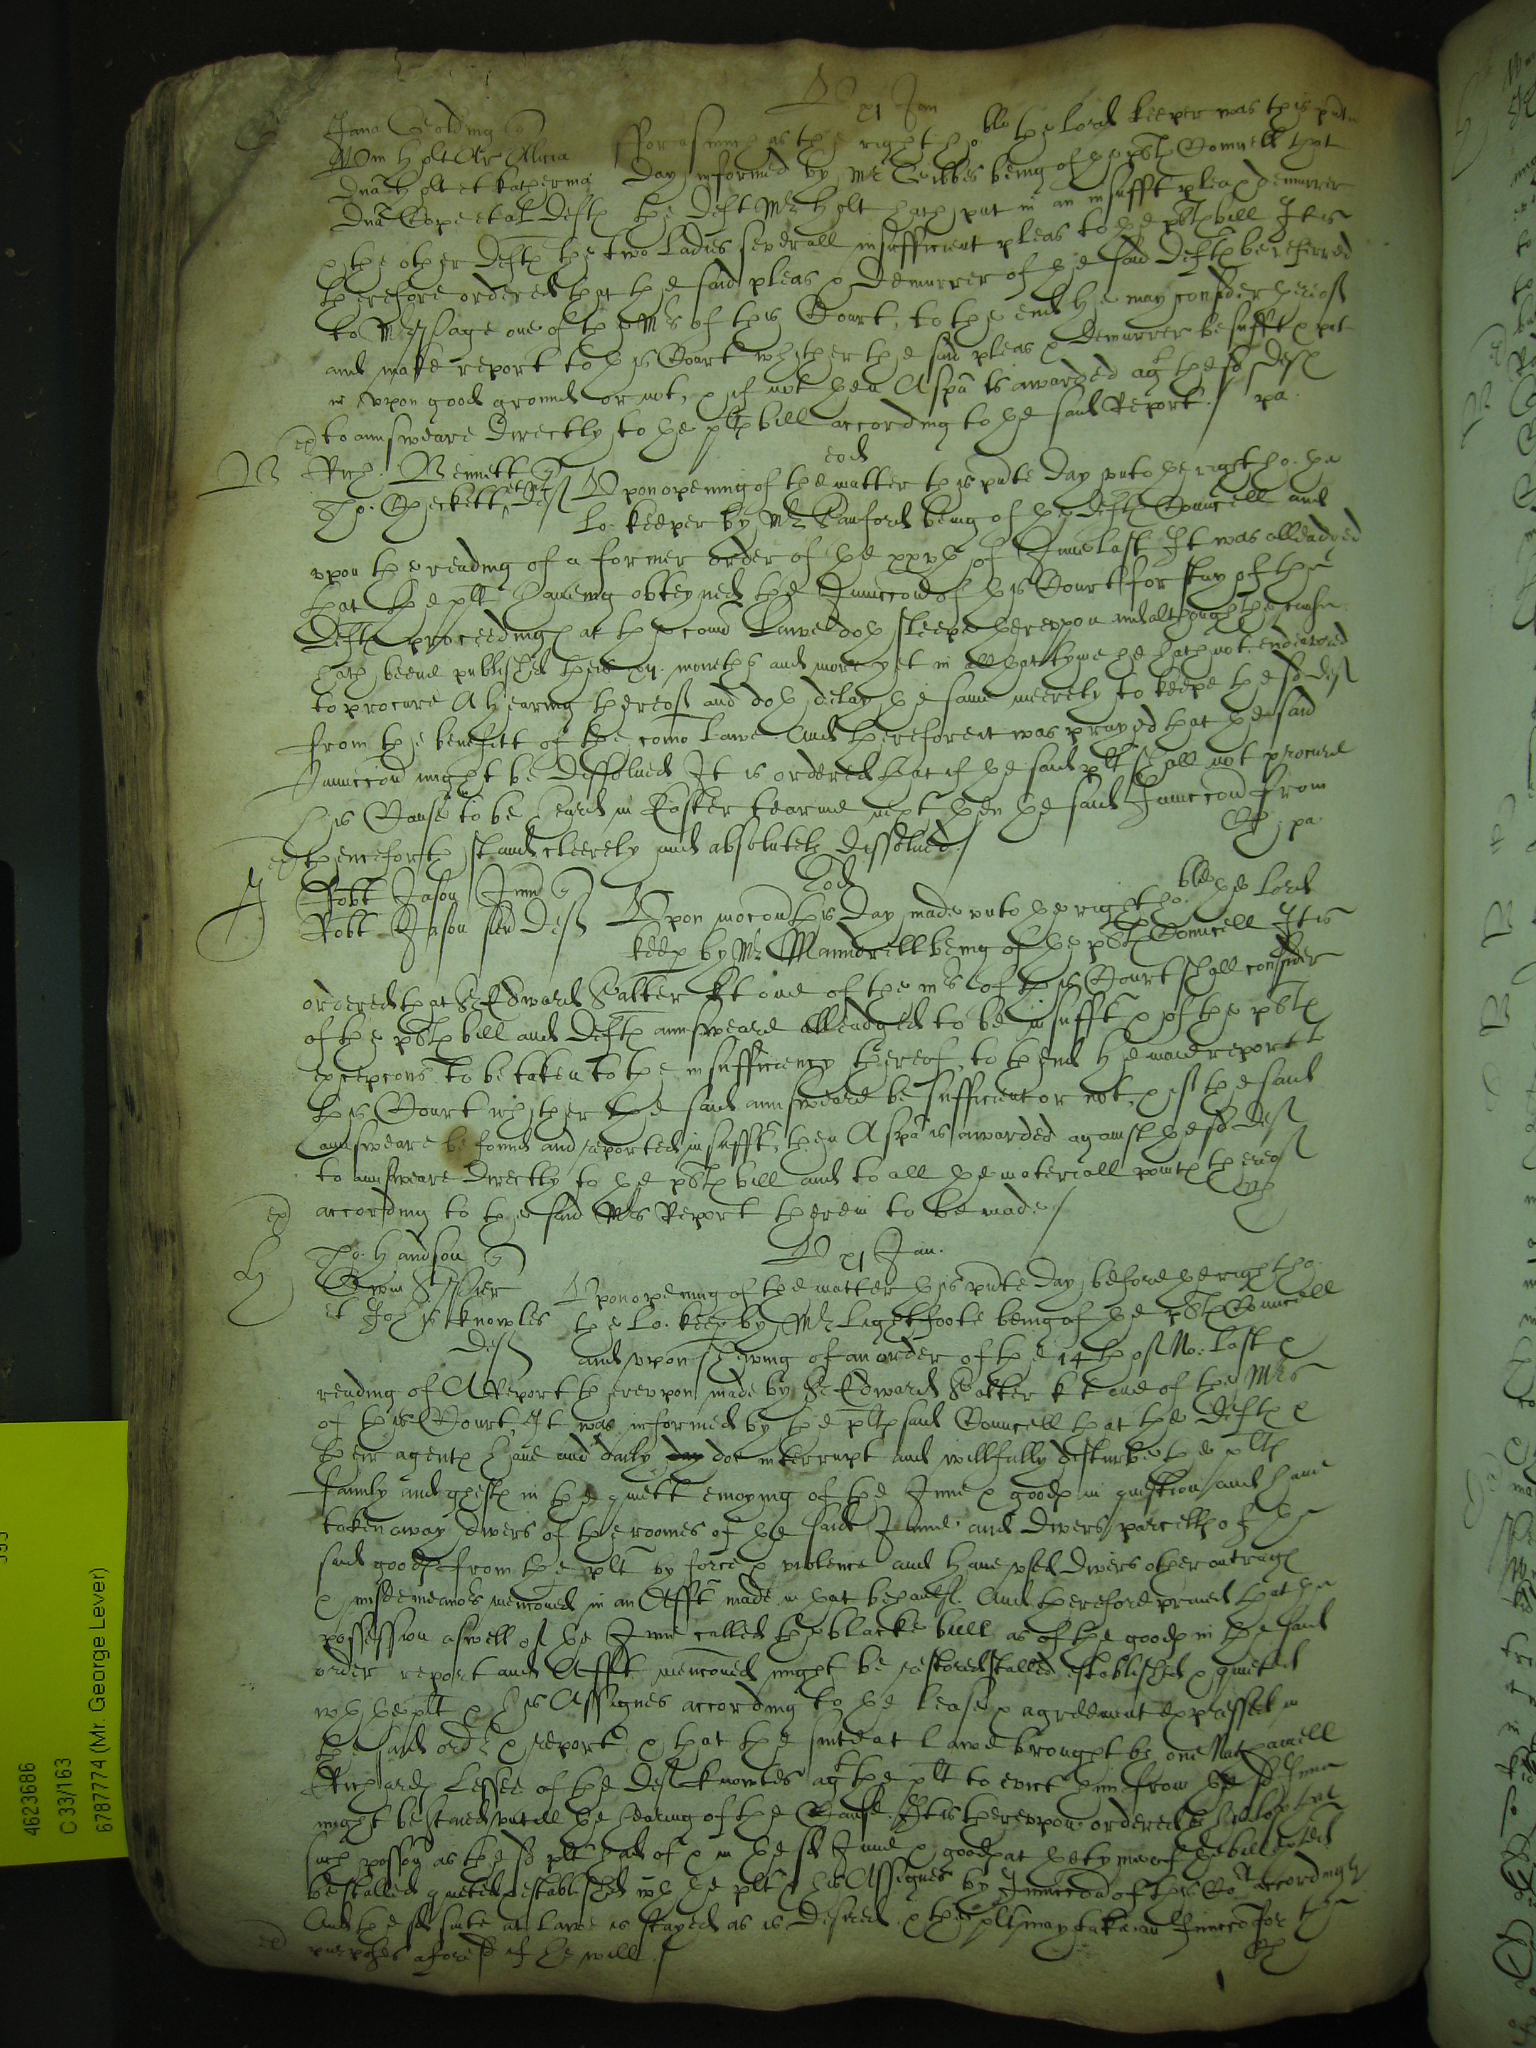 V xj Jan
Jana Golding q
Wm Holt Ar Alicia fforasmuch as the right ho: ble the Lord keeper was this pnte
Dna Holt et Katherina day informed by Mr Gibbes being of the plts Councell that
Dna Cope et al Defts the Deft Mr Holt hath put in an insufft plea & demurrer
& the other Defts the two Ladies severall insufficient pleas to the plts bill It is
therefore ordered that the said pleas & demurrer of the said Defts be referred
to Mr Page one of the Mrs of this Court, to the end he may consider thereof
and make report to this Court whether the said pleas & demurrer be sufft & put
in vpon good ground or not, & if not then A spa is awarded agt the sd Defts
to aunsweare directly to the plts bill according to the said Report / pa
ex
B Rich: Bennett q eod
Tho: Checkett et al Def Vpon opening of the matter this pnte day vnto the right ho. the
Lo: keeper by Mr Sanford being of the Defts Councell and
vpon the reading of a former order of the xxvth of June last It was alleadged
that the plt haueing obteyned the Iniuccon of this Court for stay of the
Defts proceedings at the comon Lawe doth sleepe therevpon and although the cause
hath beene published theis xij. moneths and more yet in all that tyme he hath not endeavored
to procure A hearing thereof and doth delay the same meerely to keepe the sd Def
from the benefitt of the comon Lawe. And therefore it was prayed that the said
Iniuccon might be dissolued It is ordered that if the said plt shall not procure
this Cause to be heard in Easter tearme next then the said Iniuccon from
ex thenceforth stand cleerely and absolutely dissolued / pa
J Robt Jason Junr q Eod
Robt Jason senr Def Vpon mocon this day made vnto the right ho: ble the Lord
keep by Mr Maundrell being of the plts Councell It is
ordered that Sr Edward Salter kt one of the mrs of this Court shall consider
of the plts bill and Defts aunsweare alleadged to be insufft & of the plts
excepcons to be taken to the insufficiency thereof, to thend he maie report to
this Court whether the said aunsweare be sufficient or not, & if the said
aunsweare be found and reported insufft, then A spa is awarded against the sd Def
to aunsweare directly to the plts bill and to all the materiall points thereof
ex according to the said Mrs Report therein to be made /
H Tho: Handson q V xj Jan.
et Johis Knowles Vpon opening of the matter this pnte day before the right ho:
the Lo: keep by Mr Lightfoote being of the plts Councell
Def and vpon shewing of an order of the 14th of No: last &
reading of A Report therevpon made by Sr Edward Salter kt one of the Mrs
of this Court, It was informed by the plts said Councell that the Defts &
their agents haue and daily doe interrupt and willfully disturbe the plts
family and guests in the quiett enioying of the Inne & goods in question and haue
taken away divers of the roomes of the said Inne and divers parcells of the
said goods from the plt by force & violence and haue vsed divers other outrags
& misdemeanors menconed in an Afft made in that behaulfe. And therefore prayed that the
possession aswell of the Inne called the blacke bull as of the goods in the said
order report and Afft menconed might be restored stalled established & quieted
wth the plt & his Assignes according to the lease & agreement expressed in
the said order & report & that the suite at Lawe brought by one Nathaniell
Richards Lessee of the Def Knowles agt the plt to evict him from the sd Inne
might be stayed vntill the hearing of the Cause. It is therevpon ordered
such posson as the sd plt had of & in the sd Inne & goods at the tyme of the bill exhted
be stalled quieted & established wth the plt & his Assignes by Iniuccon of this Cot accordingly
And the sd suite at Lawe is stayed as is desired & the plt may take an Iniuccon for the
ex purposes aforesd if he will /
4623686
C 33/163
6787774 (Mr. George Lever)